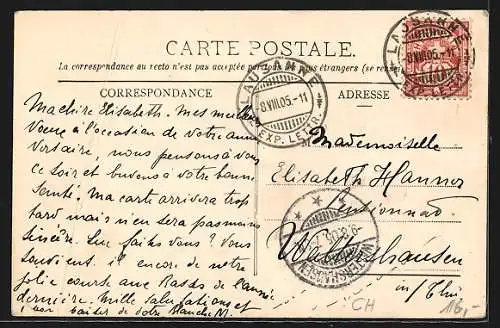 CARTE POSTALE.
La correspondance au recto n'est pas acceptée par tous les pays étrangers (se rense
CORRESPONDANCE
ADRESSE
LAUSANNE
-8.VIII.05.-11
EXP. LETTR.
LAUSANNE
8.VIII.05.-11
EXP. LETTR.
Ma chère Elisabeth. Mes meilleurs
voeux à l'occasion de votre anni
versaire, nous pensons à vous
ce soir et buvons à votre bonne
santé. Ma carte arrivera trop
tard mais n'en sera pas moins
sincère. Que faites vous? Vous
souvient il encore de notre
jolie course aux Rasses de l'année
dernière. Mille salutations et
bon baiser de votre Blanche M.
Mademoiselle
Elisabeth Hannor
Pensionnat
Waltershausen
in/Thür
WALTERSHAUSEN
9.8.05
CH
116,-